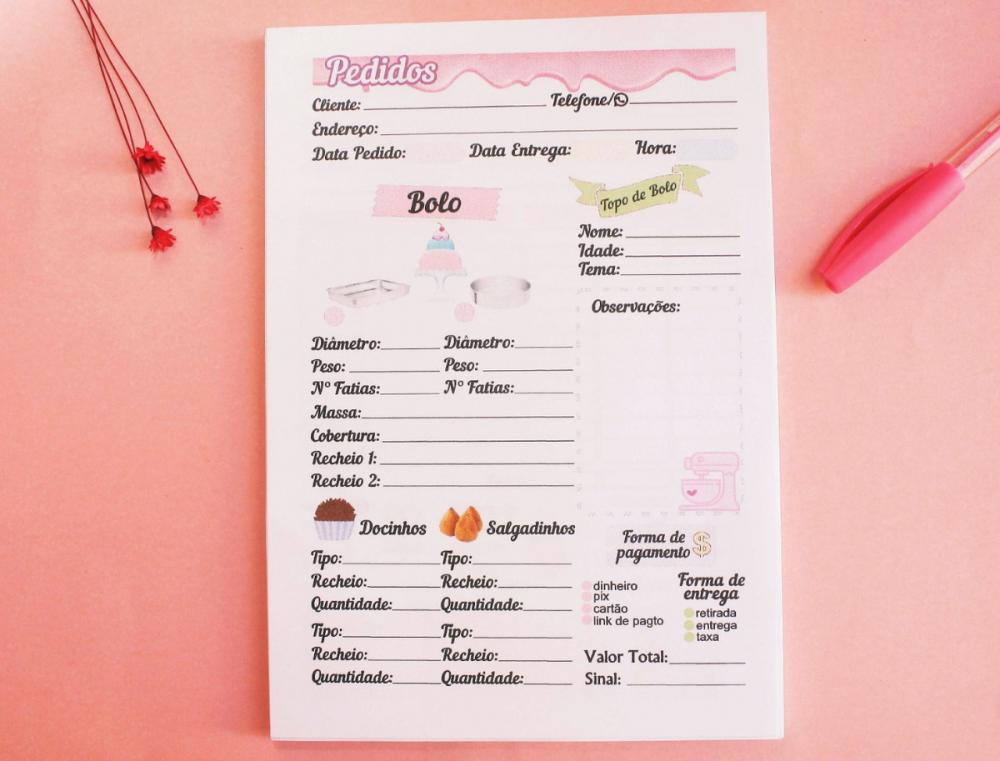 Pedidos
Cliente: Telefone/
Endereço:
Data Pedido: Data Entrega: Hora:
Bolo
Topo de Bolo
Nome:
Idade:
Tema:
Observações:
Diâmetro: Diâmetro:
Peso: Peso:
Nº Fatias: Nº Fatias:
Massa:
Cobertura:
Recheio 1:
Recheio 2:
Docinhos Salgadinhos
Tipo: Tipo:
Recheio: Recheio:
Quantidade: Quantidade:
Tipo: Tipo:
Recheio: Recheio:
Quantidade: Quantidade:
Forma de
pagamento $
dinheiro
pix
cartão
link de pagto
Forma de
entrega
retirada
entrega
taxa
Valor Total:
Sinal: